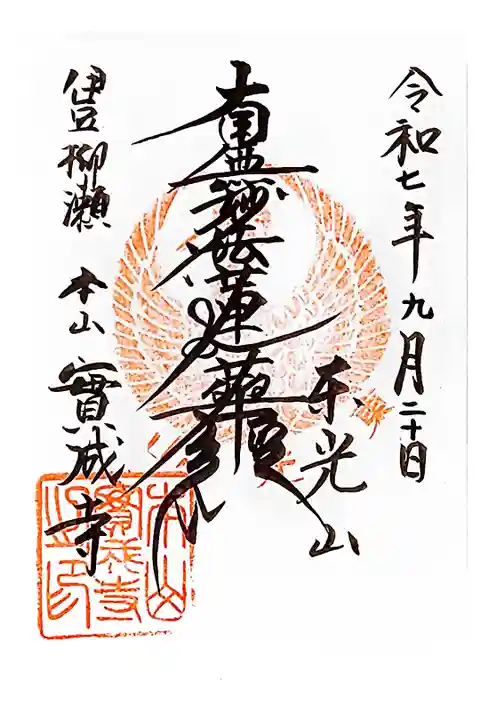 令和七年九月二十日
東光山
南無妙法蓮華経
伊豆柳瀬
本山 實成寺